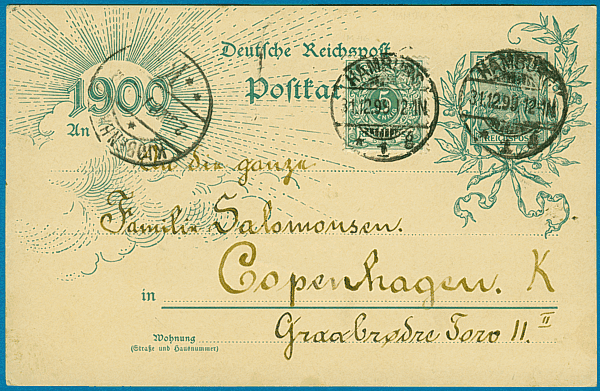 Deutsche Reichspost
1900
Postkar
HAMBURG
31.12.99.12-1N.
* 1 8
5
HAMBURG
31.12.99.12-1N.
* 1 8
REICHSPOST
KJØBENH
An
An die ganze
Familie Salomonsen.
Copenhagen. K
in
Graabrødre Torv 11. II
Wohnung
(Straße und Hausnummer)